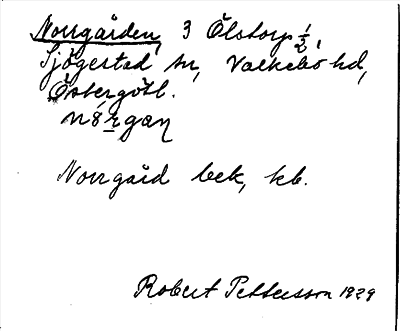 Norrgården, 3 Ölstorp 1/2,
Sjögestad sn, Valkebo hd,
Östergötl.
Norrgård bek, kb.
Robert Pettersson 1929